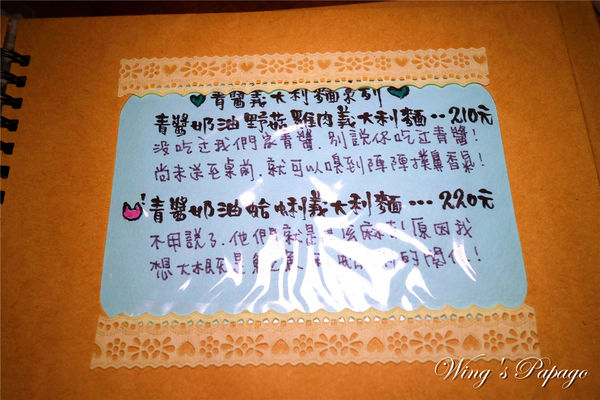 青醬義大利麵系列
青醬奶油野菇雞肉義大利麵‥210元
沒吃過我們家青醬,別說你吃過青醬!
尚未送至桌前,就可以嗅到陣陣撲鼻香氣!
青醬奶油蛤蜊義大利麵…220元
不用說了,他們就是 麻吉 原因我
想大概是 的關係!
Wing's Papago